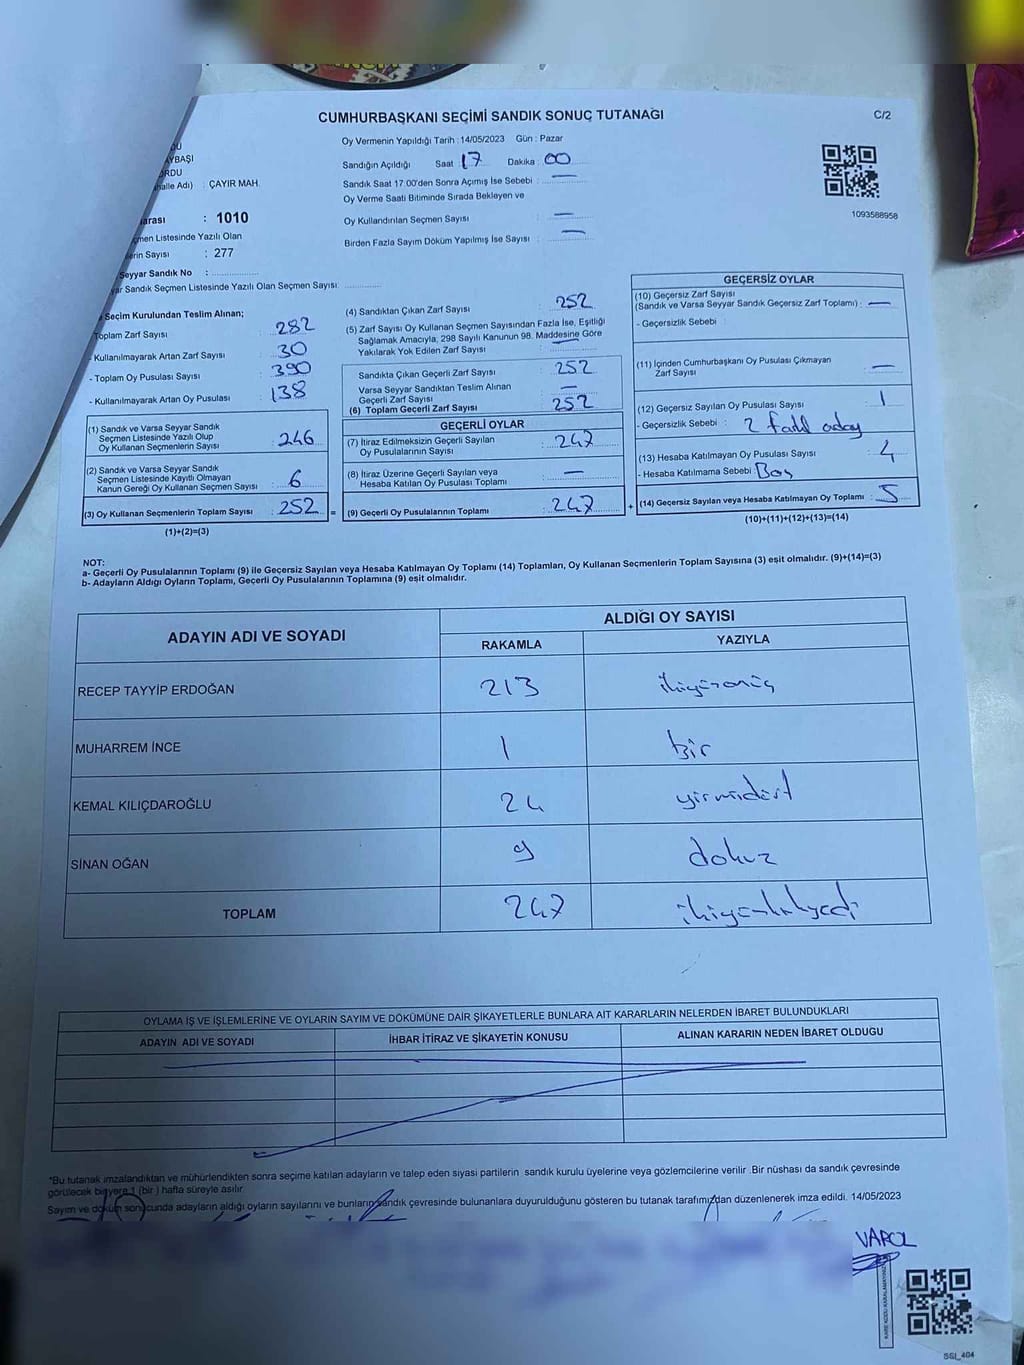 CUMHURBAŞKANI SEÇİMİ SANDIK SONUÇ TUTANAĞI
C/2
Oy Vermenin Yapıldığı Tarih : 14/05/2023 Gün : Pazar
Sandığın Açıldığı Saat 17 Dakika : 00
Sandık Saat 17:00'den Sonra Açımış İse Sebebi : —
Oy Verme Saati Bitiminde Sırada Bekleyen ve
Oy Kullandırılan Seçmen Sayısı : —
Birden Fazla Sayım Döküm Yapılmış İse Sayısı : —
1093588958
DU
AYBAŞI
ORDU
halle Adı) : ÇAYIR MAH.
arası : 1010
çmen Listesinde Yazılı Olan
lerin Sayısı : 277
Seyyar Sandık No :
yar Sandık Seçmen Listesinde Yazılı Olan Seçmen Sayısı:
Seçim Kurulundan Teslim Alınan;
Toplam Zarf Sayısı : 282
- Kullanılmayarak Artan Zarf Sayısı : 30
- Toplam Oy Pusulası Sayısı : 390
- Kullanılmayarak Artan Oy Pusulası : 138
(1) Sandık ve Varsa Seyyar Sandık
Seçmen Listesinde Yazılı Olup
Oy Kullanan Seçmenlerin Sayısı : 246
(2) Sandık ve Varsa Seyyar Sandık
Seçmen Listesinde Kayıtlı Olmayan
Kanun Gereği Oy Kullanan Seçmen Sayısı : 6
(3) Oy Kullanan Seçmenlerin Toplam Sayısı : 252 =
(1)+(2)=(3)
(4) Sandıktan Çıkan Zarf Sayısı : 252
(5) Zarf Sayısı Oy Kullanan Seçmen Sayısından Fazla İse, Eşitliği
Sağlamak Amacıyla, 298 Sayılı Kanunun 98. Maddesine Göre
Yakılarak Yok Edilen Zarf Sayısı : —
Sandıkta Çıkan Geçerli Zarf Sayısı : 252
Varsa Seyyar Sandıktan Teslim Alınan
Geçerli Zarf Sayısı : —
(6) Toplam Geçerli Zarf Sayısı : 252
GEÇERLİ OYLAR
(7) İtiraz Edilmeksizin Geçerli Sayılan
Oy Pusulalarının Sayısı : 247
(8) İtiraz Üzerine Geçerli Sayılan veya
Hesaba Katılan Oy Pusulası Toplamı : —
(9) Geçerli Oy Pusulalarının Toplamı : 247 +
GEÇERSİZ OYLAR
(10) Geçersiz Zarf Sayısı
(Sandık ve Varsa Seyyar Sandık Geçersiz Zarf Toplamı) : —
- Geçersizlik Sebebi :
(11) İçinden Cumhurbaşkanı Oy Pusulası Çıkmayan
Zarf Sayısı : —
(12) Geçersiz Sayılan Oy Pusulası Sayısı : 1
- Geçersizlik Sebebi : 2 fazla aday
(13) Hesaba Katılmayan Oy Pusulası Sayısı : 4
- Hesaba Katılmama Sebebi : Boş
(14) Geçersiz Sayılan veya Hesaba Katılmayan Oy Toplamı : 5
(10)+(11)+(12)+(13)=(14)
NOT:
a- Geçerli Oy Pusulalarının Toplamı (9) ile Geçersiz Sayılan veya Hesaba Katılmayan Oy Toplamı (14) Toplamları, Oy Kullanan Seçmenlerin Toplam Sayısına (3) eşit olmalıdır. (9)+(14)=(3)
b- Adayların Aldığı Oyların Toplamı, Geçerli Oy Pusulalarının Toplamına (9) eşit olmalıdır.
ADAYIN ADI VE SOYADI
ALDIĞI OY SAYISI
RAKAMLA YAZIYLA
RECEP TAYYİP ERDOĞAN 213 ikiyüzonüç
MUHARREM İNCE 1 bir
KEMAL KILIÇDAROĞLU 24 yirmidört
SİNAN OĞAN 9 dokuz
TOPLAM 247 ikiyüzkırkyedi
OYLAMA İŞ VE İŞLEMLERİNE VE OYLARIN SAYIM VE DÖKÜMÜNE DAİR ŞİKAYETLERLE BUNLARA AİT KARARLARIN NELERDEN İBARET BULUNDUKLARI
ADAYIN ADI VE SOYADI İHBAR İTİRAZ VE ŞİKAYETİN KONUSU ALINAN KARARIN NEDEN İBARET OLDUĞU
*Bu tutanak imzalandıktan ve mühürlendikten sonra seçime katılan adayların ve talep eden siyasi partilerin sandık kurulu üyelerine veya gözlemcilerine verilir .Bir nüshası da sandık çevresinde
görülecek bir yere 1 (bir ) hafta süreyle asılır.
Sayım ve döküm sonucunda adayların aldığı oyların sayılarını ve bunların sandık çevresinde bulunanlara duyurulduğunu gösteren bu tutanak tarafımızdan düzenlenerek imza edildi. 14/05/2023
VAROL
KARE KODU KARALAMAYINIZ
SGİ_404